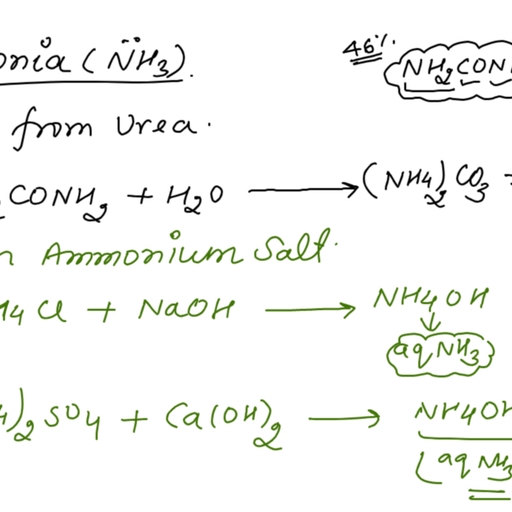 onia (N̈H3).
46%
NH2CON
from Urea.
CONH2 + H2O ⟶ (NH4)2CO3
n Ammonium Salt.
H4Cl + NaOH ⟶ NH4OH
aq NH3
)2SO4 + Ca(OH)2 ⟶ NH4OH
(aq NH3